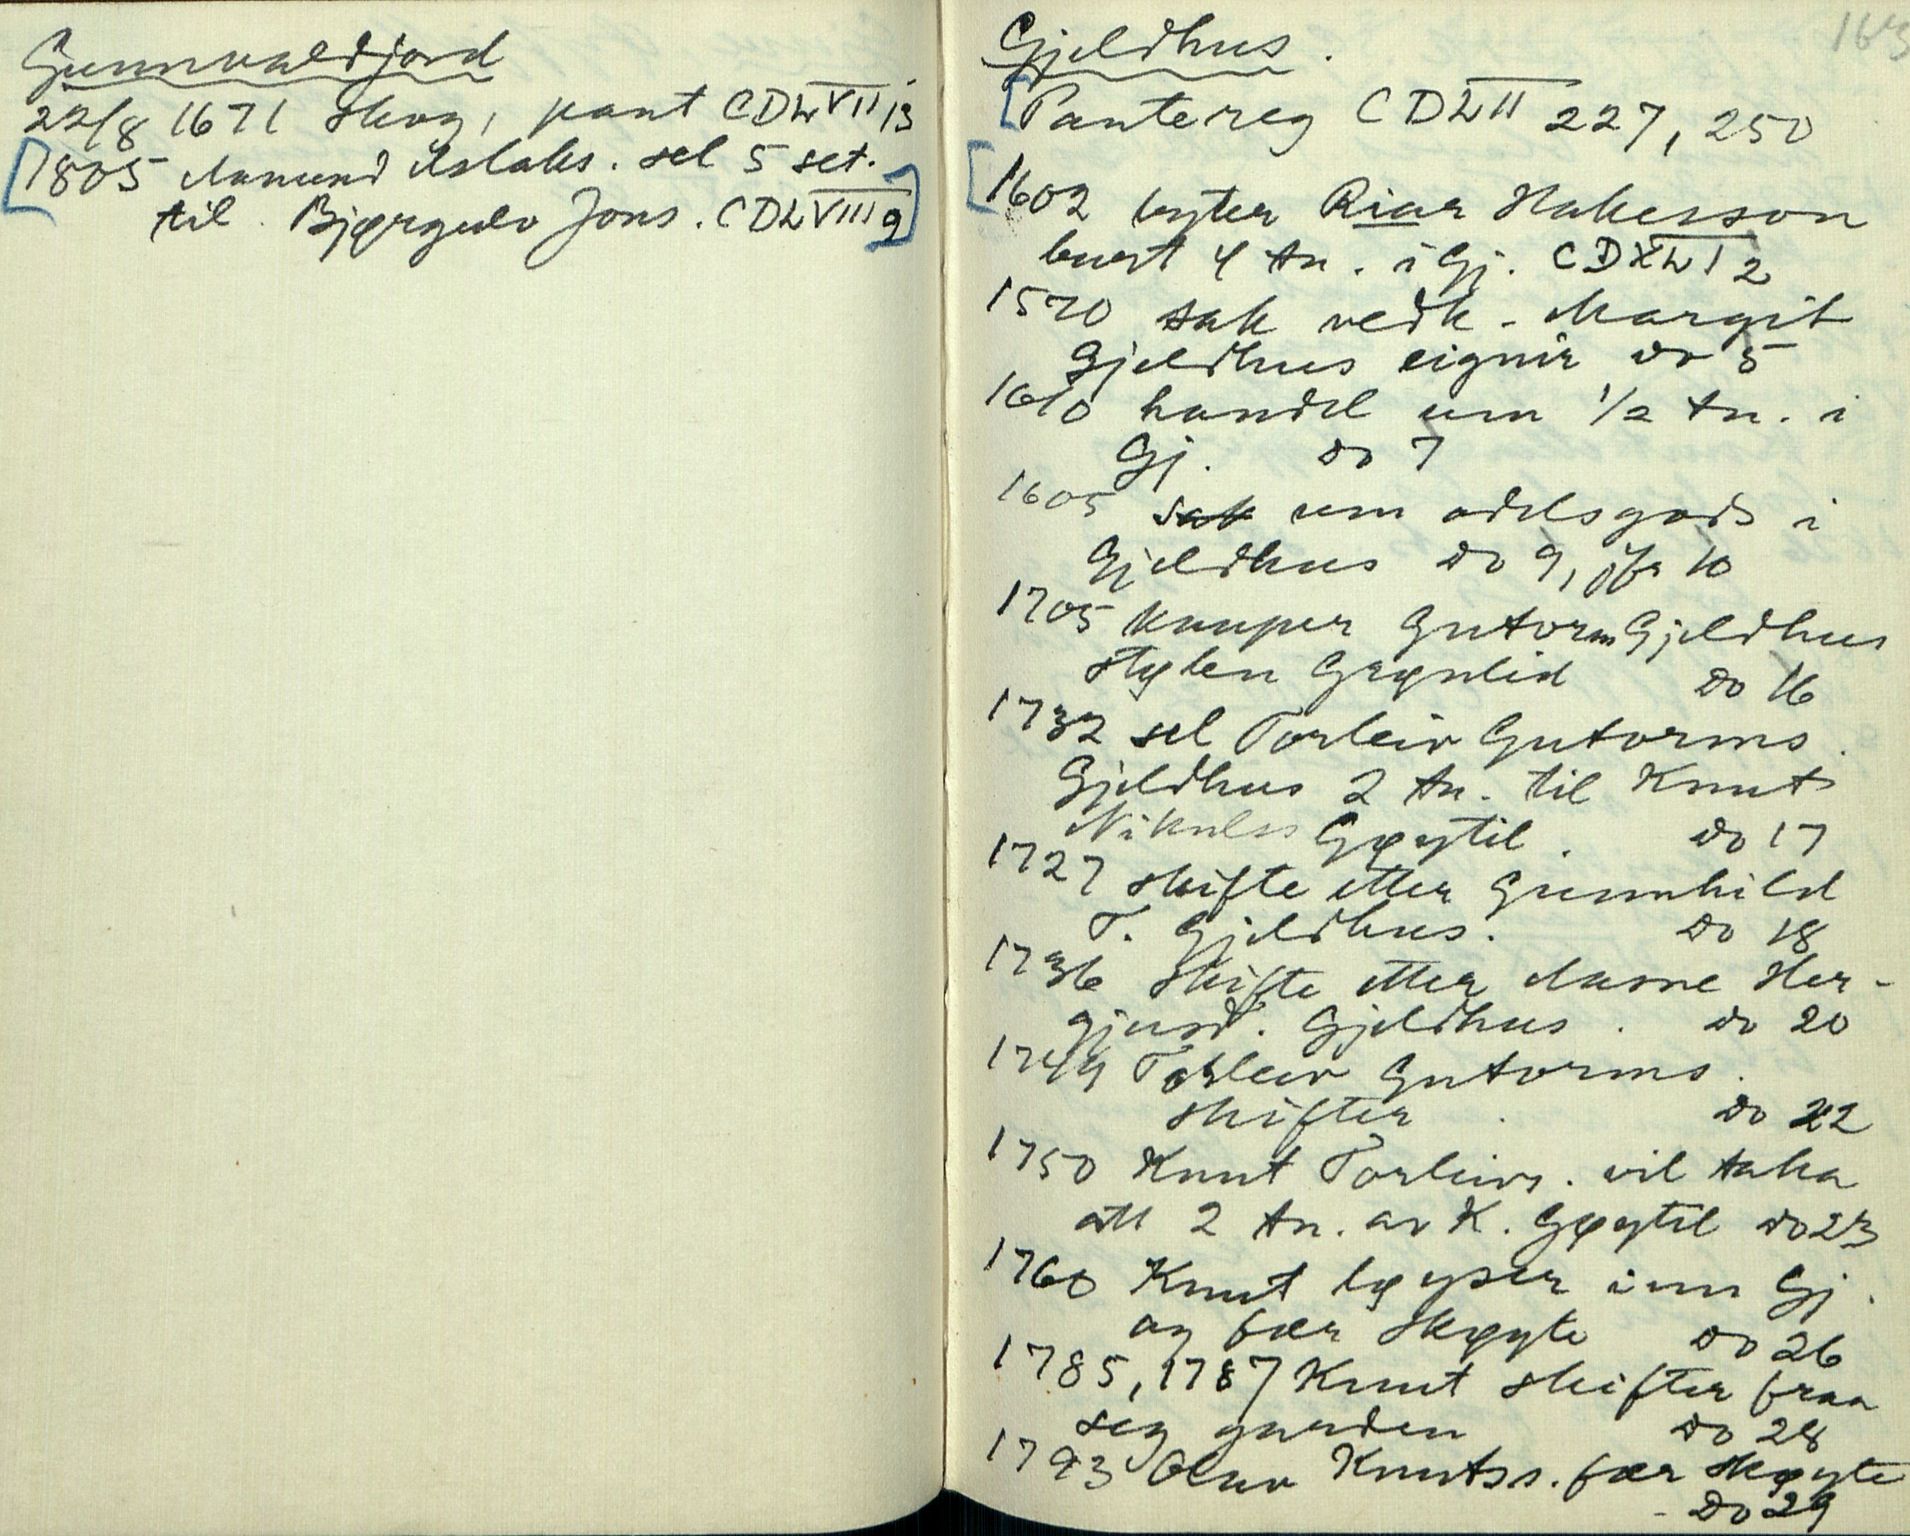 Gunnvaldjord
22/8 1671 skog, pant CDLVII 13
[1805 Aamund Aslaks. sel 5 set.
til Bjørgulv Jons. CDLVIII 9]
163
Gjeldhus.
[Pantereg CDLII 227, 250
[1602 byter Riar Hakesson
burt 4 tn. i Gj. CDXLI 2
1570 sak vedk. Margit
Gjeldhus eignir do 5
1610 handel um 1/2 tn. i
Gj. do 7
1605 sak um odelsgods i
Gjeldhus do 9, jfr 10
1705 kauper Gutorm Gjeldhus
støylen Grønlid do 16
1732 sel Torleiv Gutorms.
Gjeldhus 2 tn. til Knut
Nikulss Gøytil. do 17
1727 skifte etter Gunnhild
T. Gjeldhus. do 18
1736 skifte etter Aasne Her-
gjusd. Gjeldhus. do 20
1744 Torleiv Gutorms.
skifter. do 22
1750 Knut Torleivs. vil taka
att 2 tn. av K. Gøytil do 23
1760 Knut løyser inn Gj.
og fær skøyte do 26
1785, 1787 Knut skifter fraa
seg garden do 28
1793 Olav Knutss. fær skøyte
- do 29